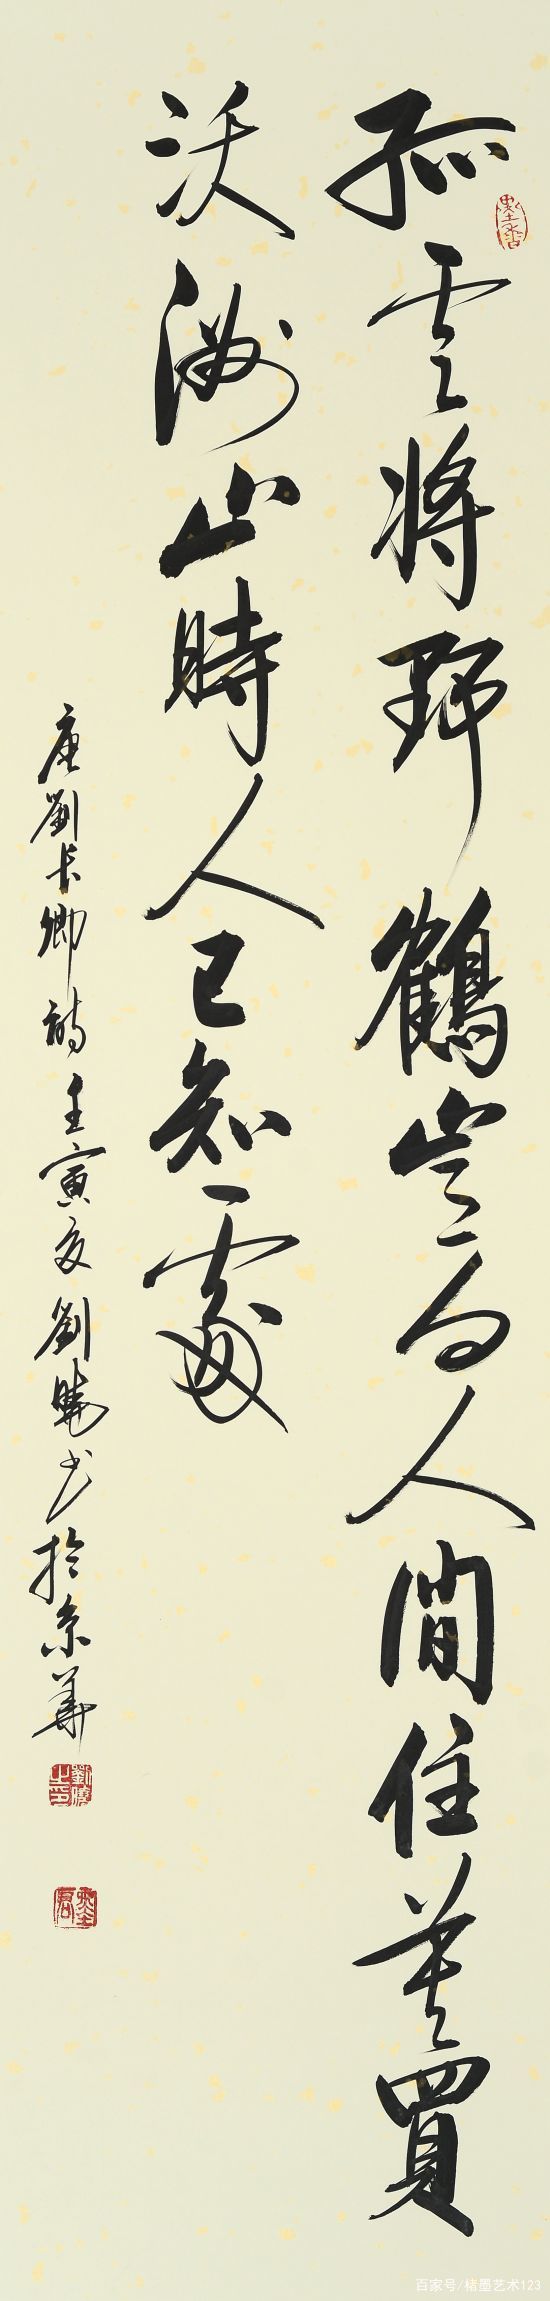 孤云将野鹤岂向人間住莫買
沃洲山時人已知處
唐劉长卿詩壬寅夏劉曉书於京華
百家号/楮墨艺术123